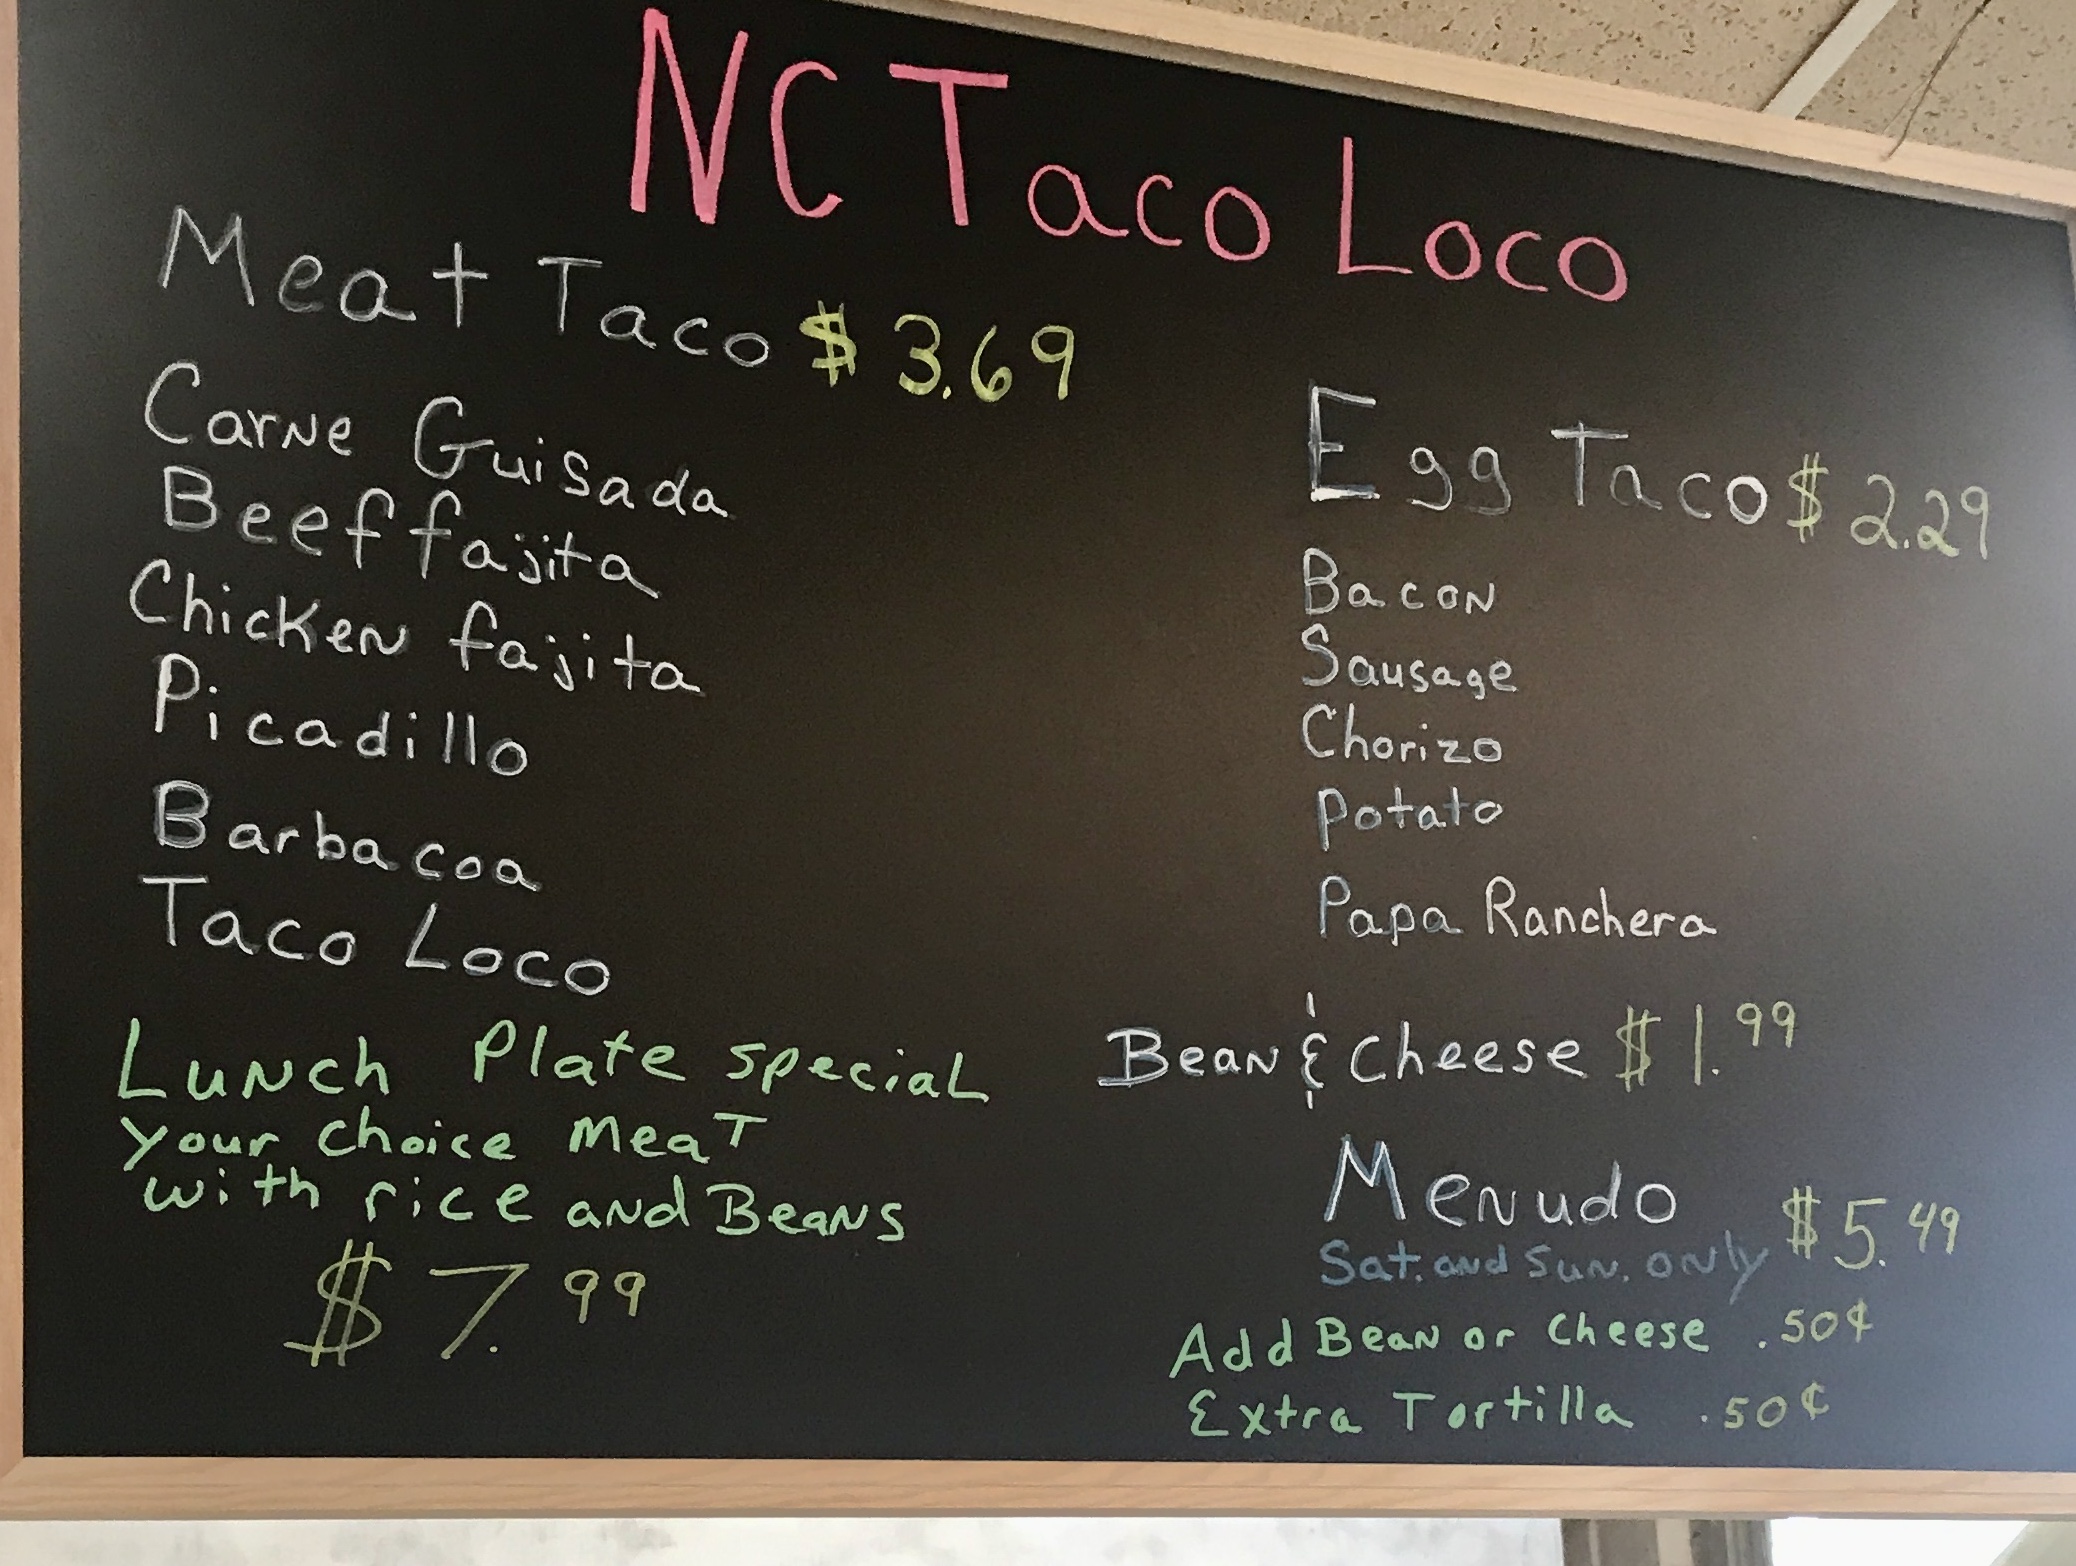 NC Taco Loco
Meat Taco $3.69
Carne Guisada
Beef fajita
Chicken fajita
Picadillo
Barbacoa
Taco Loco
Lunch Plate special
your choice meat
with rice and Beans
$7.99
Egg Taco $2.29
Bacon
Sausage
Chorizo
Potato
Papa Ranchera
Bean & Cheese $1.99
Menudo $5.49
Sat. and Sun. only
Add Bean or Cheese .50¢
Extra Tortilla .50¢